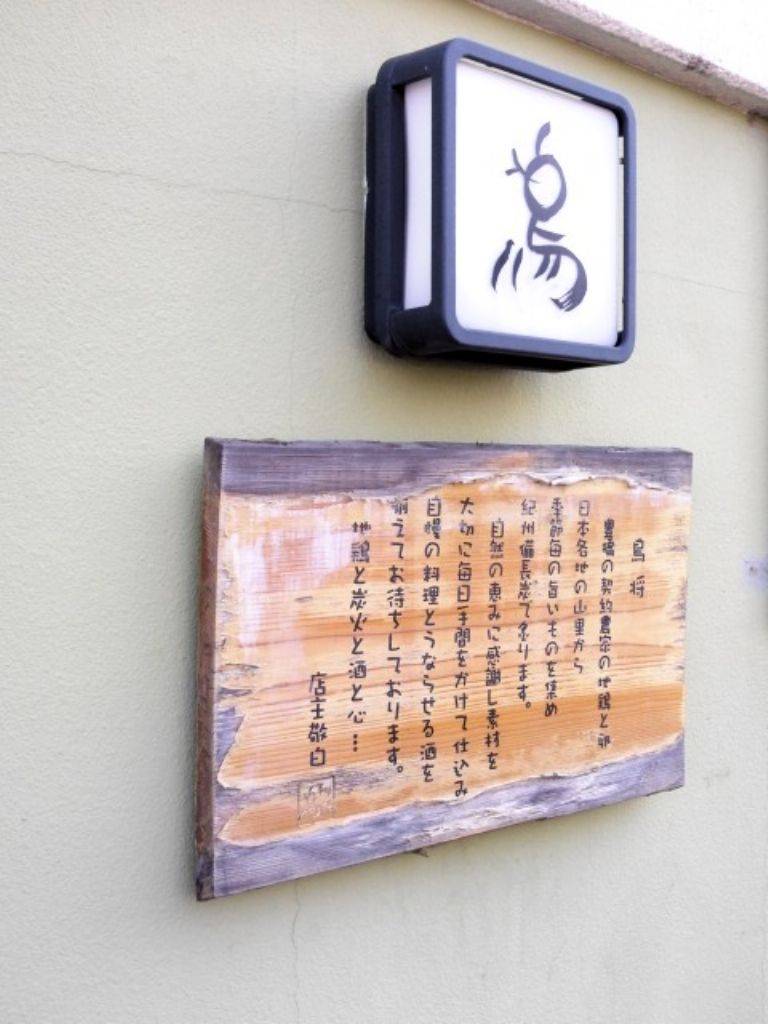 鳥
鳥将
豊鳴の契約農家の地鶏と卵
日本各地の山里から
季節毎の旨いものを集め
紀州備長炭で炙ります。
自然の恵みに感謝し素材を
大切に毎日手間をかけて仕込み
自慢の料理とうならせる酒を
揃えてお待ちしております。
地鶏と炭火と酒と心…
店主敬白